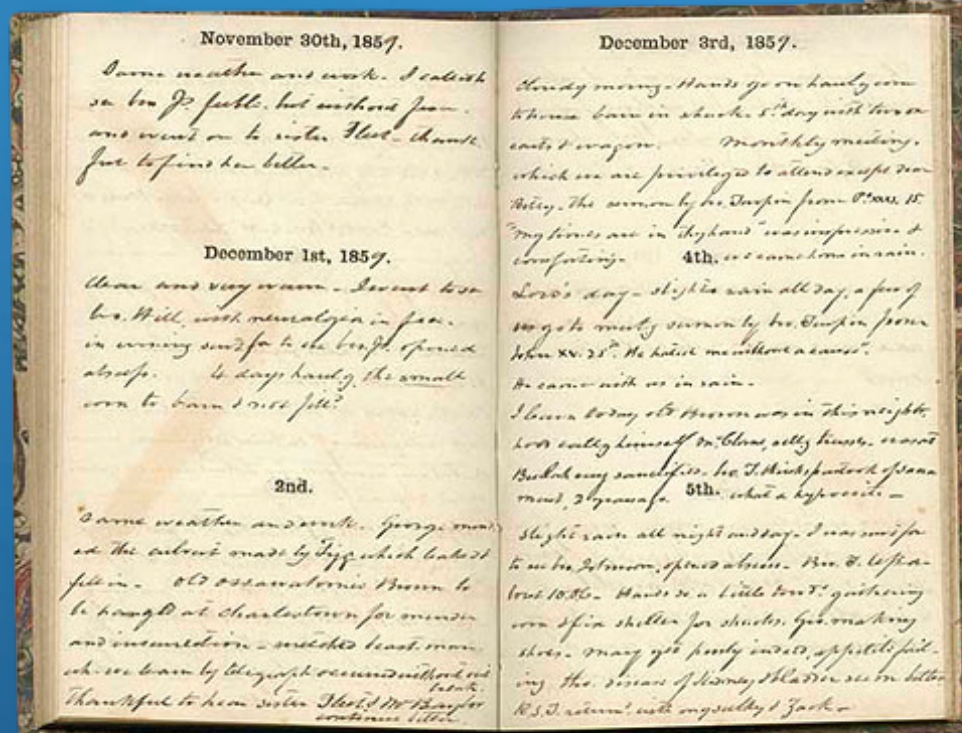 November 30th, 1859.
Same weather and work. I called to
see bro Jo. but without
and went on to sister Fleet - thank
ful to find her better.
December 1st, 1859.
Clear and very warm - I went to see
bro. Will, with neuralgia in face.
in evening sent for to see bro. Jo. opened
abscess. 4 days haulg. the small
corn to barn & not
2nd.
Same weather and work. George mend
ed the culvert made by which leaked &
fell in. Old Ossawatomie Brown to
be hanged at Charlestown for murder
and insurrection - wretched beast-man,
wh. we learn by telegraph occurred without out
break.
Thankful to hear sister Fleet & Mr Baylor
continue better.
December 3rd, 1859.
Cloudy morng - Hands go on haulg corn
to house barn in shuck. 5th day with two ox
carts & wagon. Monthly meeting,
which we are privileged to attend except dear
Betty. the sermon by bro. Turpin from Ps. xxxi. 15.
"My times are in thy hand" was impressive &
comforting. 4th. we came home in rain.
Lord's day - slight rain all day, a few of
us go to meetg sermon by bro. Turpin from
John xv. 25th. "He hated me without a cause".
He came with us in rain.
I learn today old Brown was in this neighbor
hood callg himself Mr. sellg
very bro. T. thinks partook of same
meal, 2 years ago. 5th. what a hypocrite -
Slight rain all night and day. I was sent for
to see bro. Johnson, opened abscess. Bro. T. left a-
bout 10. Hands do a little gathering
corn & fix shelter for shucks. Geo. making
shoes. Mary yet poorly indeed, appetite fail-
ing tho. disease of Kidney & bladder seem better
R.S.T. return'd with my sulky & Zack -